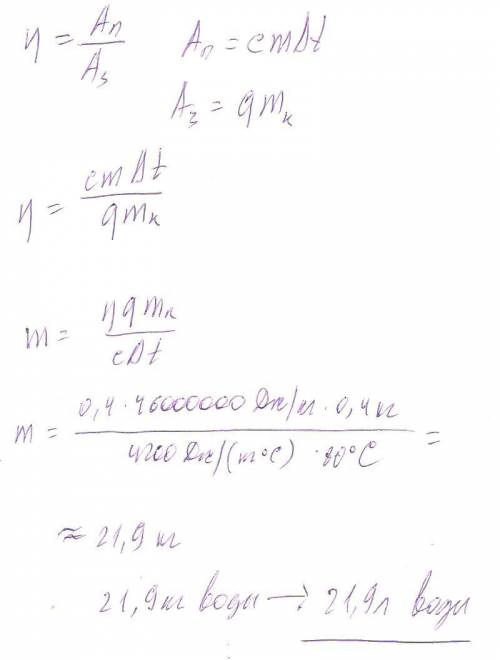 η = Aп / Aз    Aп = cmΔt
Aз = qmк
η = cmΔt / qmк
m = ηqmк / cΔt
m = 0,4 · 46000000 Дж/кг · 0,4 кг / 4200 Дж/(кг°C) · 80°C =
≈ 21,9 кг
21,9 кг воды → 21,9 л воды